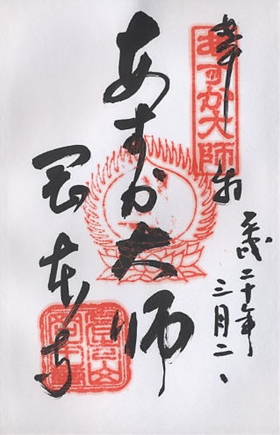 奉拝
あすか大師
平成二十年
三月二日
あすか大師
岡本寺